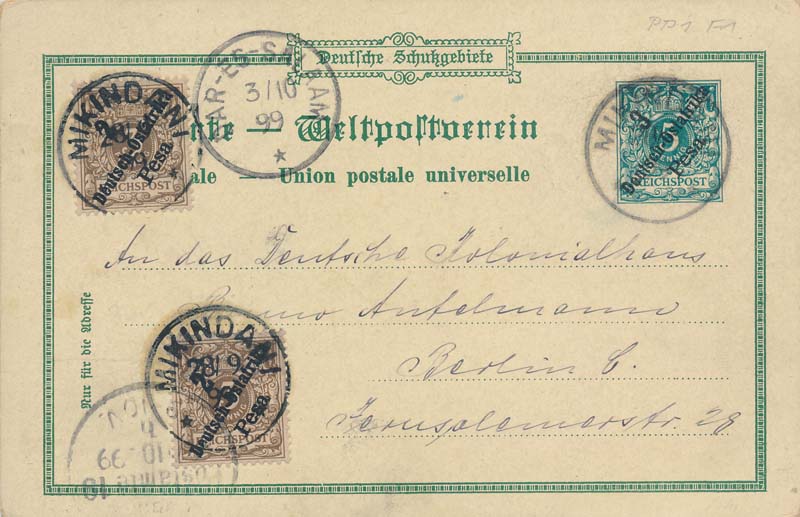 PP1 F1
Deutsche Schutzgebiete
— Weltpostverein
— Union postale universelle
MIKINDANI
2
Deutsch-Ostafrika
Pesa
REICHSPOST
DAR-ES-SALAAM
3/10
99
3
Deutsch-Ostafrika
Pesa
REICHSPOST
An das Deutsche Kolonialhaus
Bruno Antelmann
Berlin C.
Jerusalemerstr. 28
Nur für die Adresse
MIKINDANI
28/9
2
Deutsch-Ostafrika
Pesa
REICHSPOST
10.99
Postamte 19